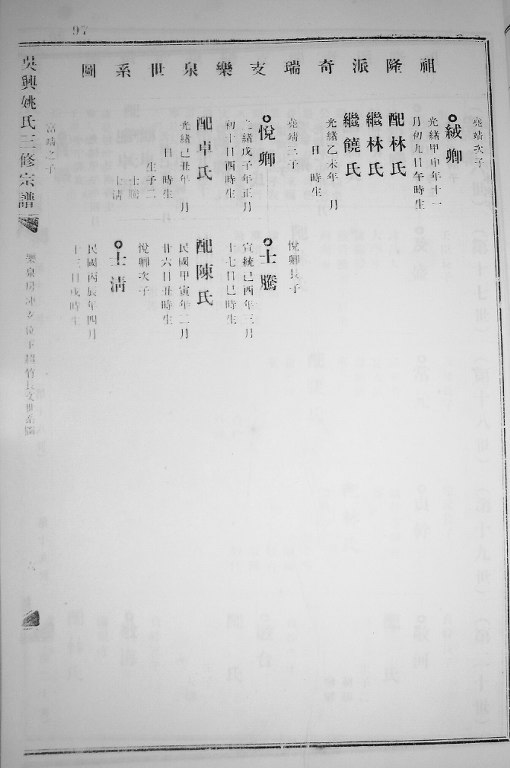 97
祖隆派奇瑞支樂泉世系圖
堯靖次子
絨卿
光緒甲申年十一
月初九日午時生
配林氏
繼林氏
繼饒氏
光緒乙未年 月
日 時生
堯靖三子
悅卿
光緒戊子年正月
初十日酉時生
配卓氏
光緒己丑年 月
日 時生
生子二
士騰
士清
富靖之子
悅卿長子
士騰
宣統己酉年三月
十七日巳時生
配陳氏
民國甲寅年二月
廿六日丑時生
悅卿次子
士清
民國丙辰年四月
十三日戌時生
吳興姚氏三修宗譜